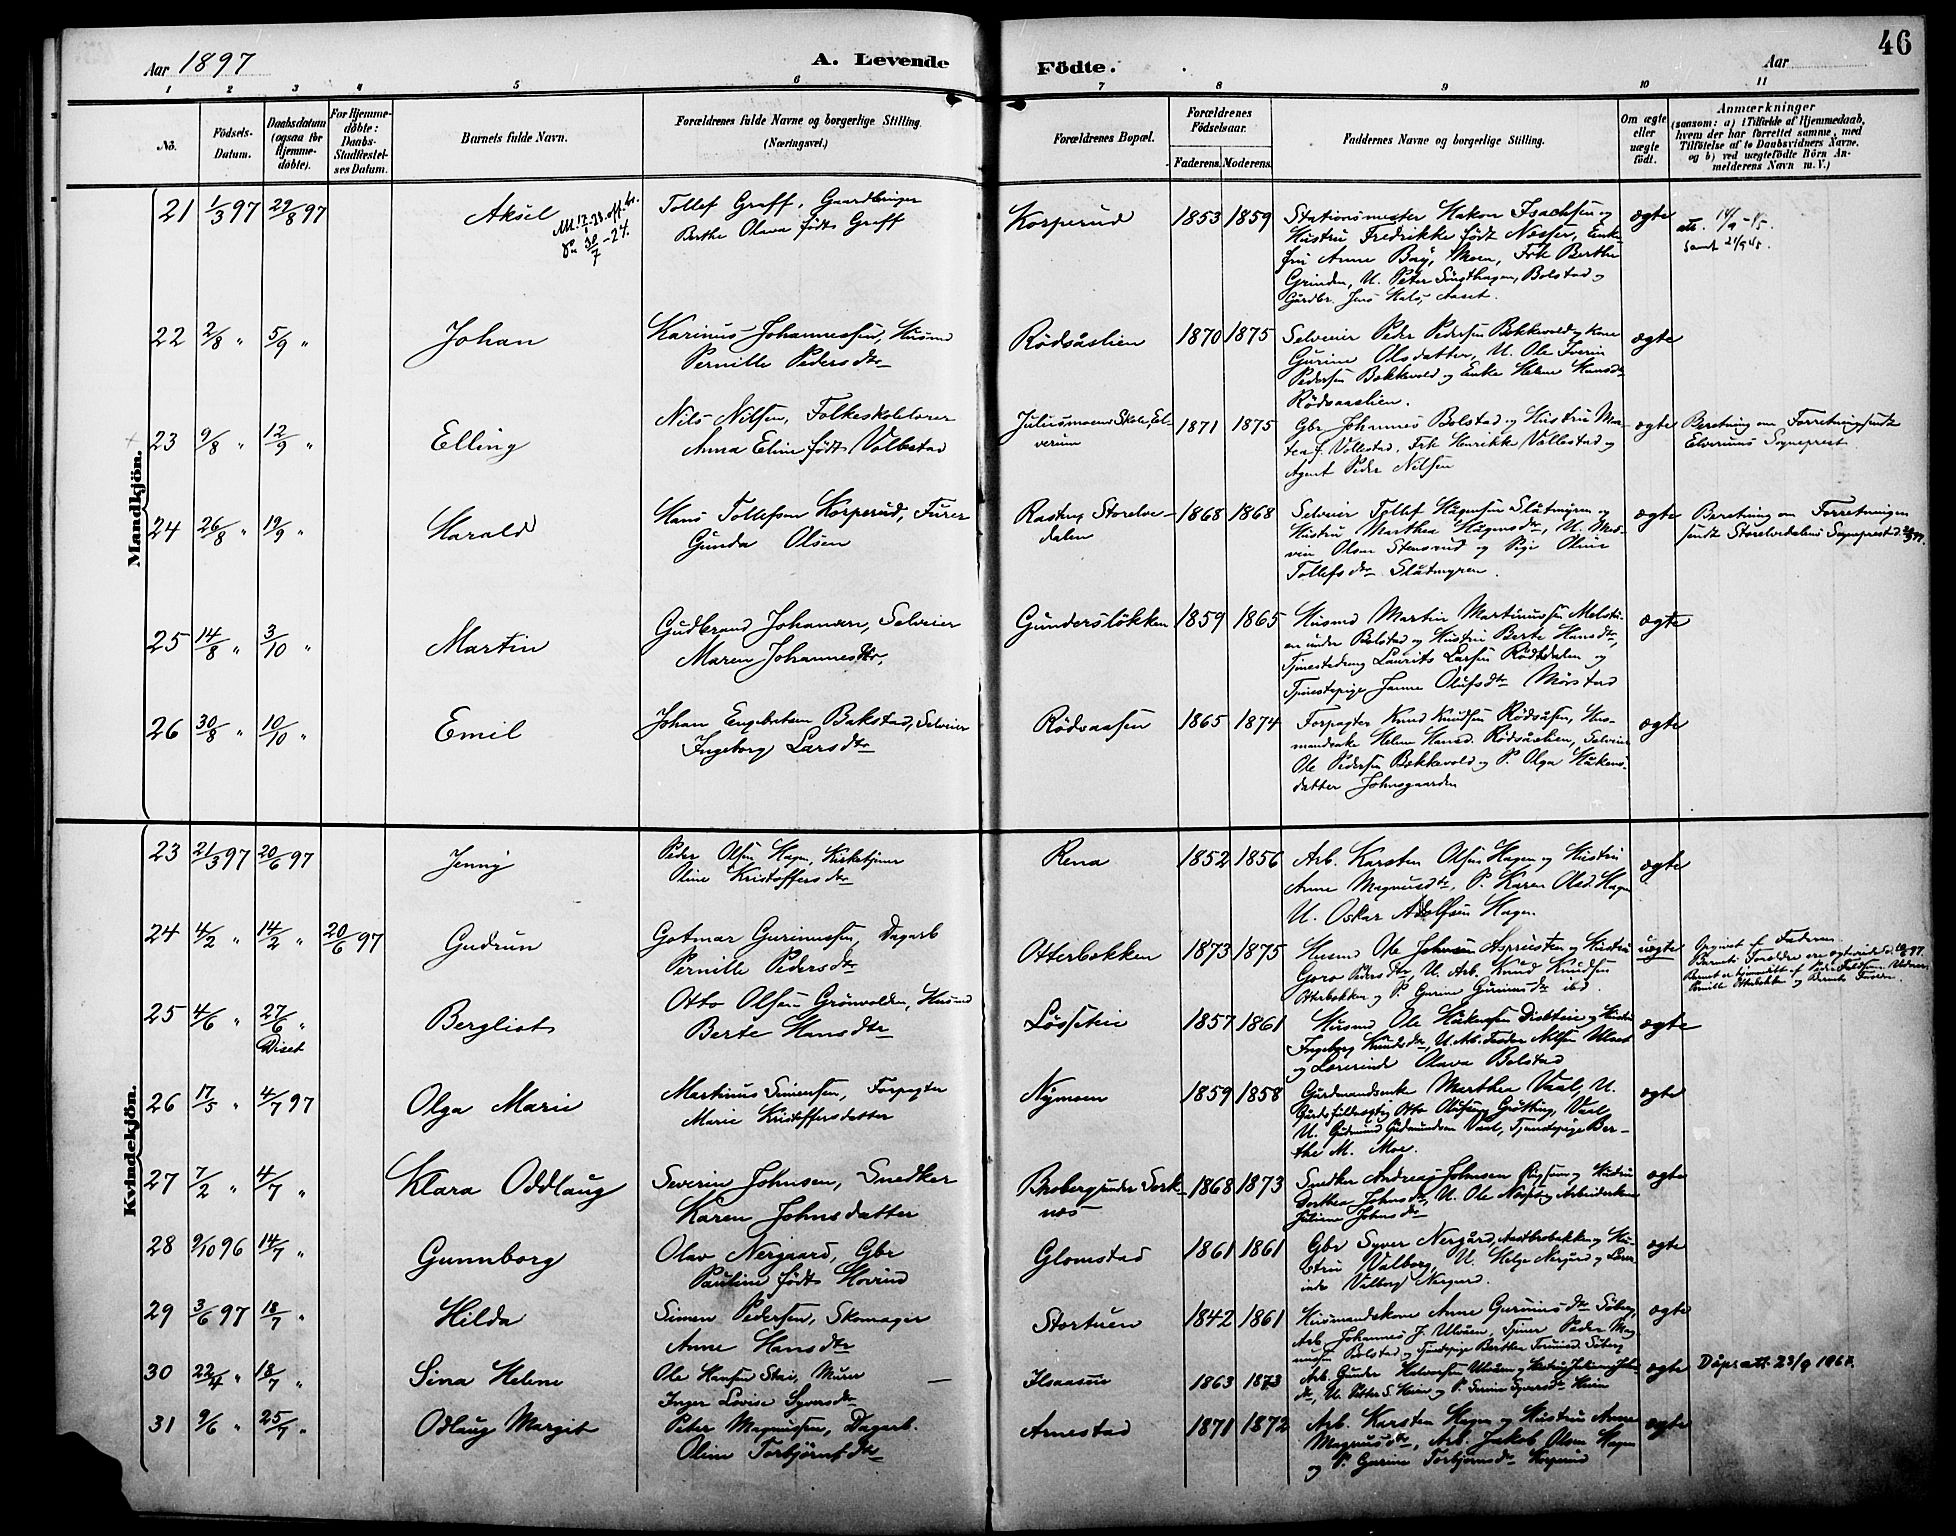 46
Aar 1897
A. Levende
Födte.
Aar
1 2 3 4 5 6 7 8 9 10 11
Nö.
Födsels-
Datum.
Daabsdatum
(ogsaa for
Hjemme-
döbte).
For Hjemme-
döbte:
Daabs-
Stadfæstel-
ses Datum.
Barnets fulde Navn.
Forældrenes fulde Navne og borgerlige Stilling.
(Næringsvei.)
Forældrenes Bopæl.
Forældrenes
Födselsaar.
Faderens. Moderens.
Faddernes Navne og borgerlige Stilling.
Om ægte
eller
uægte
födt.
Anmærkninger
(saasom: a) i Tilfælde af Hjemmedaab,
hvem der har forrettet samme, med
Tilföielse af to Daabsvidners Navne,
og b) ved uægtefödte Börn An-
melderens Navn m. V.)
Mandkjön.
21 1/3 97 29/8 97 Aksel
Tollef Graff, Gaardbruger
Berthe Olava födt Graff
Korperud 1853 1859
Stationsmester Hakon Isachsen og
Hustru Fredrikke födt Næsser, Enke-
fru Anne Bay, Moen, Frk Berthe
Grinden, U. Peter Bolstad og
Gårdbr. Jens Aaset.
ægte
22 2/8 " 5/9 " Johan
Karinus Johannessen, Husmd
Pernille Pedersdtr
Rödsåslien 1870 1875
Selveier Peder Pedersen Bekkevold og Kone
Gurine Olsdatter, U. Ole Iverin
Pedersen Bækkevold og Enke Helene Hansdtr
Rödsaaslien.
ægte
23 9/8 " 12/9 " Elling
Nils Nilsen, Folkeskolelærer
Anna Eline födt Volbestad
Juliusmoens Skole, El-
verum
1871 1875
Gbr Johannes Bolstad og Hustru Mar-
tea f. Vollestad, Frk Henrikke Vollestad og
Agent Peder Nilsen
ægte
Beretning om Forretning sendt
Elverums Sogneprest
24 26/8 " 19/9 " Harald
Hans Tollefsen Korperud, Furer
Gunda Olsen
Rasten, Storelve-
dalen
1868 1868
Selveier Tollef Slåtmyren og
Hustru Marthea dtr, U. Mar-
Olsen Stensrud og Pige Oline
Tollefsdtr Slåtmyren.
ægte
Beretning om Forretningen
sendt Storelvedalens Sogneprest
25 14/8 " 3/10 " Martin
Gudbrand Johansen, Selveier
Maren Johannesdtr,
Gundersløkken 1859 1865
Husmd Martin Martinussen
under Bolstad og Hustru Berte Hansdtr,
Tjenestedreng Laurits Larsen Rödsdalen og
Tjenestepige Janna Olufsdtr Mörstad
ægte
26 30/8 " 10/10 " Emil
Johan Engebretsen Bakstad, Selveier
Ingeborg Larsdtr
Rödsaasen 1865 1874
Forpagter Knud Knudsen Rödsåsen, Hus-
mandsenke Helene Hansd. Rödsåslien, Selveier
Ole Pedersen Bækkevold og P. Olga Håkens-
datter Johnsgaarden
ægte
Kvindekjön.
23 21/3 97 20/6 97 Jenny
Peder Olsen Hagen, Kirketjener
Oline Kristoffersdtr
Rena 1852 1856
Arb. Karsten Olsen Hagen og Hustru
Anne Magnusdtr, P. Karen Olsd. Hagen
U. Oskar Adolfsen Hagen.
ægte
24 4/2 " 14/2 " 20/6 97 Gudrun
Gotmar Gurinussen, Dagarb
Pernille Pedersdtr
Otterbækken 1873 1875
Husmd Ole Johnsen og Hustru
Goro Pedersdtr, U. Arb. Knud Knudsen
Otterbekken og P. Gurine Gurinusdtr ibd.
uægte
Opgivet af Faderen.
Barnets Forældre ere
Pernille Otterbekken og Barnets Fader.
25 4/6 " 27/6 " Berglist
Diset
Otto Olsen Grönvolden, Husmd
Berte Hansdtr
Lösseteie 1857 1861
Husmd Ole Håkensen og Hustru
Ingeborg Knudsdtr, U. Arb. Nilsen
og Lærerinde Olava Bolstad
ægte
26 17/5 " 4/7 97 Olga Marie
Martinus Simensen, Forpagter
Marie Kristoffersdatter
Nymoen 1859 1858
Gårdmandsenke Marthea Vaal, U.
Gårdsfuldmægtig Otto Grötting, Vaal,
U. Gudmund Gudmundsen Vaal, Tjenestepige Ber-
the M. Moe.
ægte
27 7/2 " 4/7 " Klara Oddlaug
Severin Johnsen, Snedker
Karen Johnsdatter
Broberg under Sork-
næs
1868 1873
Snedker Andreas Johnsen og Hustru
Dorthea Johnsdtr, U. Ole og Arbeiderske
Juliane Johnsdtr
ægte
28 9/10 96 14/7 " Gunnborg
Olav Nergaard, Gbr
Pauline födt Hovind
Glomstad 1861 1861
Gbr Syver Nergård, og Hu-
stru Valborg, U. Helge Nergård og Lærer-
inde Valborg Nergård.
ægte
29 3/6 97 18/7 " Hilda
Simen Pedersen, Skomager
Anne Hansdtr
Stortuen 1842 1861
Husmandskone Anne Gurinusdtr Söberg,
Arb. Johannes J. Ulvåen, Tjener Peder Mag-
nussen Bolstad og Tjenestepige Berthea Söberg
ægte
30 22/4 " 18/7 " Sina Helene
Ole Hansen Stai, Murer
Inger Lovise Syversdtr
Ilsaasen 1863 1873
Arb. Gunder Halvorsen Ulvåen og Hustru
dtr, U. Petter S. Heim og P. Syversdtr Heim
ægte
Dåpsatt. 23/9 1967.
31 9/6 " 25/7 " Odlaug Margit
Peter Magnussen, Dagarb.
Oline Torbjörnsdtr
Arnestad 1871 1872
Arb. Karsten Hagen og Hustru Anne
Magnusdtr, Arb. Jakob Olsen Hagen
og P. Gurine Torbjörnsdtr Korperud
ægte